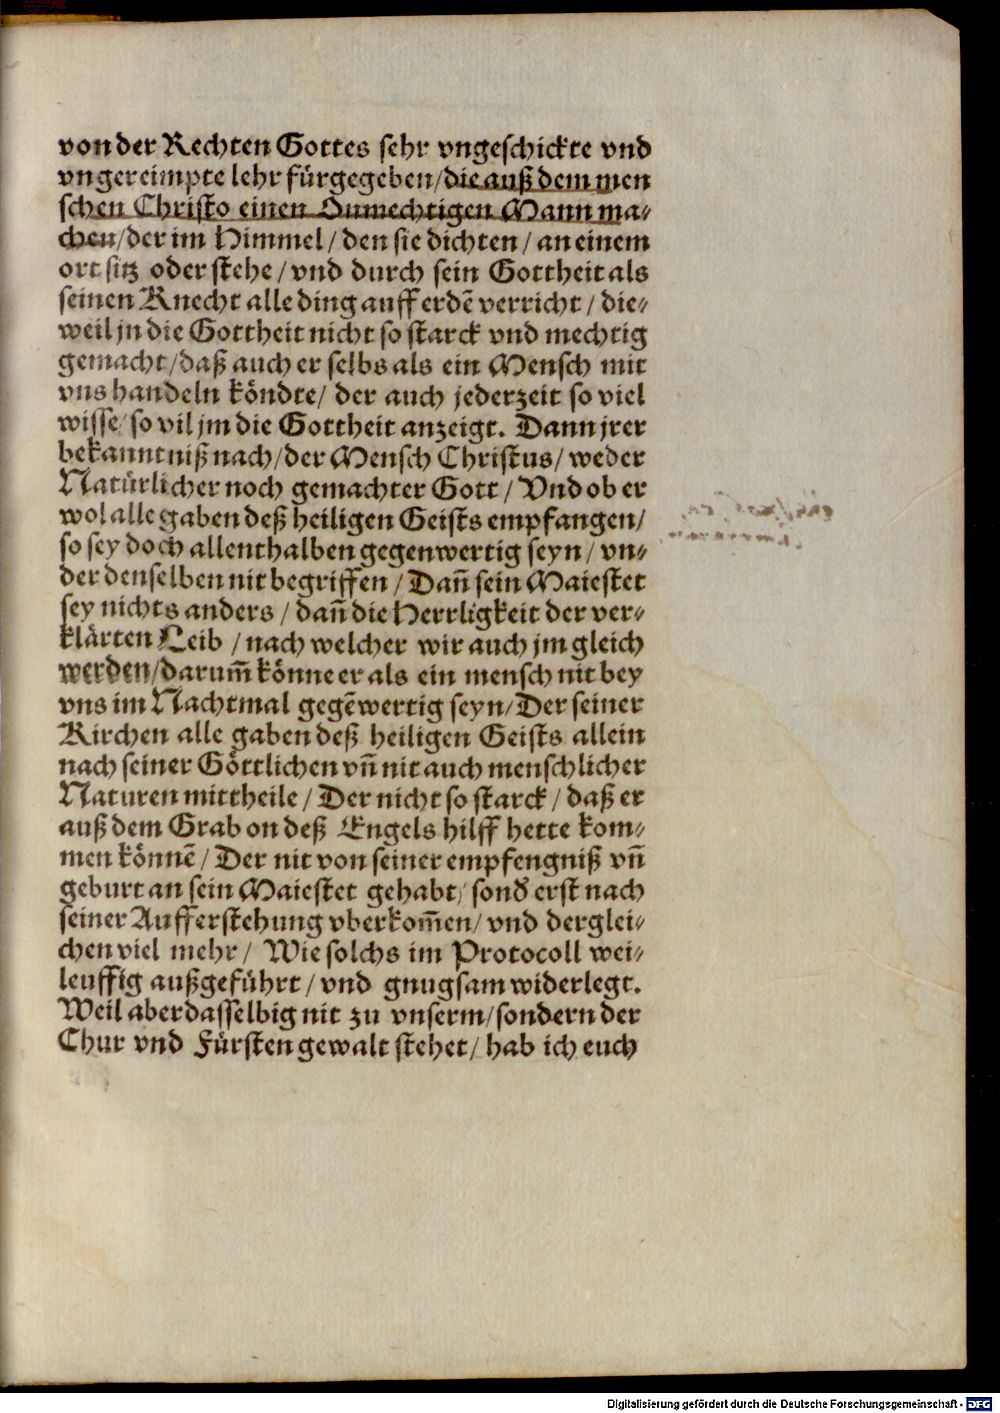 von der Rechten Gottes sehr vngeschickte vnd
vngereimpte lehr fürgegeben/die auß dem men
schen Christo einen Onmechtigen Mann ma-
chen/der im Himmel/den sie dichten/an einem
ort sitz oder stehe/vnd durch sein Gottheit als
seinen Knecht alle ding auff erdē verricht/die-
weil jn die Gottheit nicht so starck vnd mechtig
gemacht/daß auch er selbs als ein Mensch mit
vns handeln köndte/der auch jederzeit so viel
wisse/so vil jm die Gottheit anzeigt. Dann jrer
bekanntniß nach/der Mensch Christus/weder
Natürlicher noch gemachter Gott/Vnd ob er
wol alle gaben deß heiligen Geists empfangen/
so sey doch allenthalben gegenwertig seyn/vn-
der denselben nit begriffen/Dañ sein Maiestet
sey nichts anders/dañ die Herrligkeit der ver-
klärten Leib/nach welcher wir auch jm gleich
werden/darum̃ könne er als ein mensch nit bey
vns im Nachtmal gegēwertig seyn/Der seiner
Kirchen alle gaben deß heiligen Geists allein
nach seiner Göttlichen vñ nit auch menschlicher
Naturen mittheile/Der nicht so starck/daß er
auß dem Grab on deß Engels hilff hette kom-
men könnē/Der nit von seiner empfengniß vñ
geburt an sein Maiestet gehabt/sond̛ erst nach
seiner Aufferstehung vberkom̃en/vnd derglei-
chen viel mehr/Wie solchs im Protocoll wei-
leuffig außgeführt/vnd gnugsam widerlegt.
Weil aber dasselbig nit zu vnserm/sondern der
Chur vnd Fürsten gewalt stehet/hab ich euch
Digitalisierung gefördert durch die Deutsche Forschungsgemeinschaft - DFG